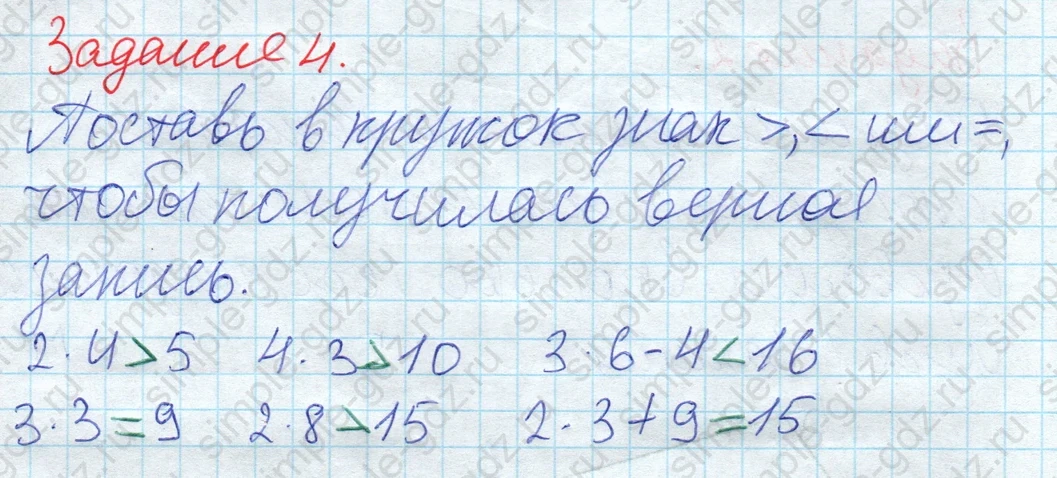 Задание 4.
Поставь в кружок знак >, < или =,
чтобы получилась верная
запись.
2·4>5 4·3>10 3·6-4<16
3·3=9 2·8>15 2·3+9=15
simple-gdz.ru